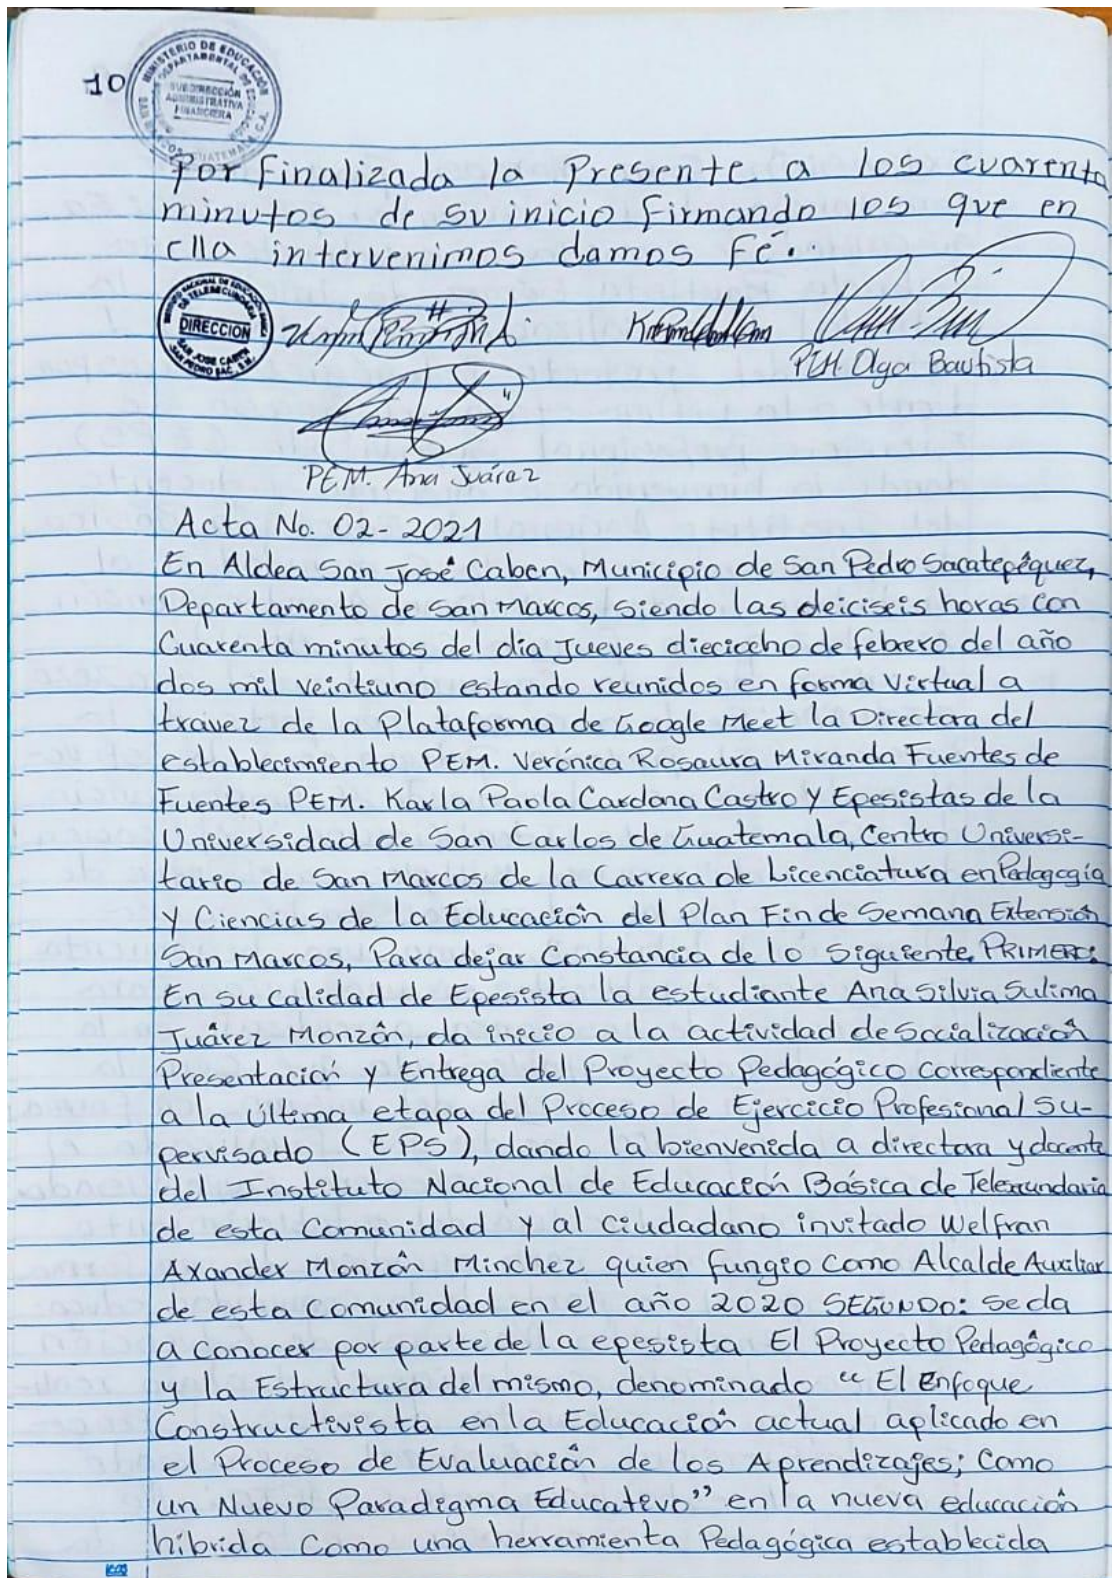 10
MINISTERIO DE EDUCACIÓN
DEPARTAMENTAL DE EDUCACIÓN
SUBDIRECCIÓN
ADMINISTRATIVA
FINANCIERA
SAN MARCOS GUATEMALA, C.A.
Por finalizada la Presente a los cuarenta
minutos de su inicio firmando los que en
ella intervenimos damos Fé..
DE TELESECUNDARIA
DIRECCIÓN
SAN JOSE CABEN
SAN PEDRO SAC., S.M.
PEM. Olga Bautista
PEM. Ana Juárez
Acta No. 02-2021
En Aldea San José Caben, Municipio de San Pedro Sacatepéquez,
Departamento de San Marcos, siendo las deiciseis horas con
Cuarenta minutos del día Jueves dieciocho de febrero del año
dos mil veintiuno estando reunidos en forma Virtual a
travez de la Plataforma de Google Meet la Directora del
establecimiento PEM. Verónica Rosaura Miranda Fuentes de
Fuentes PEM. Karla Paola Cardona Castro y Epesistas de la
Universidad de San Carlos de Guatemala, Centro Universi-
tario de San Marcos de la Carrera de Licenciatura en Pedagogía
y Ciencias de la Educación del Plan Fin de Semana Extensión
San Marcos, Para dejar Constancia de lo siguiente. PRIMERO:
En su calidad de Epesista la estudiante Ana Silvia Sulima
Juárez Monzón, da inicio a la actividad de Socialización
Presentación y Entrega del Proyecto Pedagógico Correspondiente
a la última etapa del Proceso de Ejercicio Profesional Su-
pervisado (EPS), dando la bienvenida a directora y docente
del Instituto Nacional de Educación Básica de Telesecundaria
de esta Comunidad y al ciudadano invitado Welfran
Axander Monzón Minchez quien fungio como Alcalde Auxiliar
de esta comunidad en el año 2020 SEGUNDO: se da
a conocer por parte de la epesista El Proyecto Pedagógico
y la Estructura del mismo, denominado "El Enfoque
Constructivista en la Educación actual aplicado en
el Proceso de Evaluación de los Aprendizajes; Como
un Nuevo Paradigma Educativo" en la nueva educación
híbrida Como una herramienta Pedagógica establecida